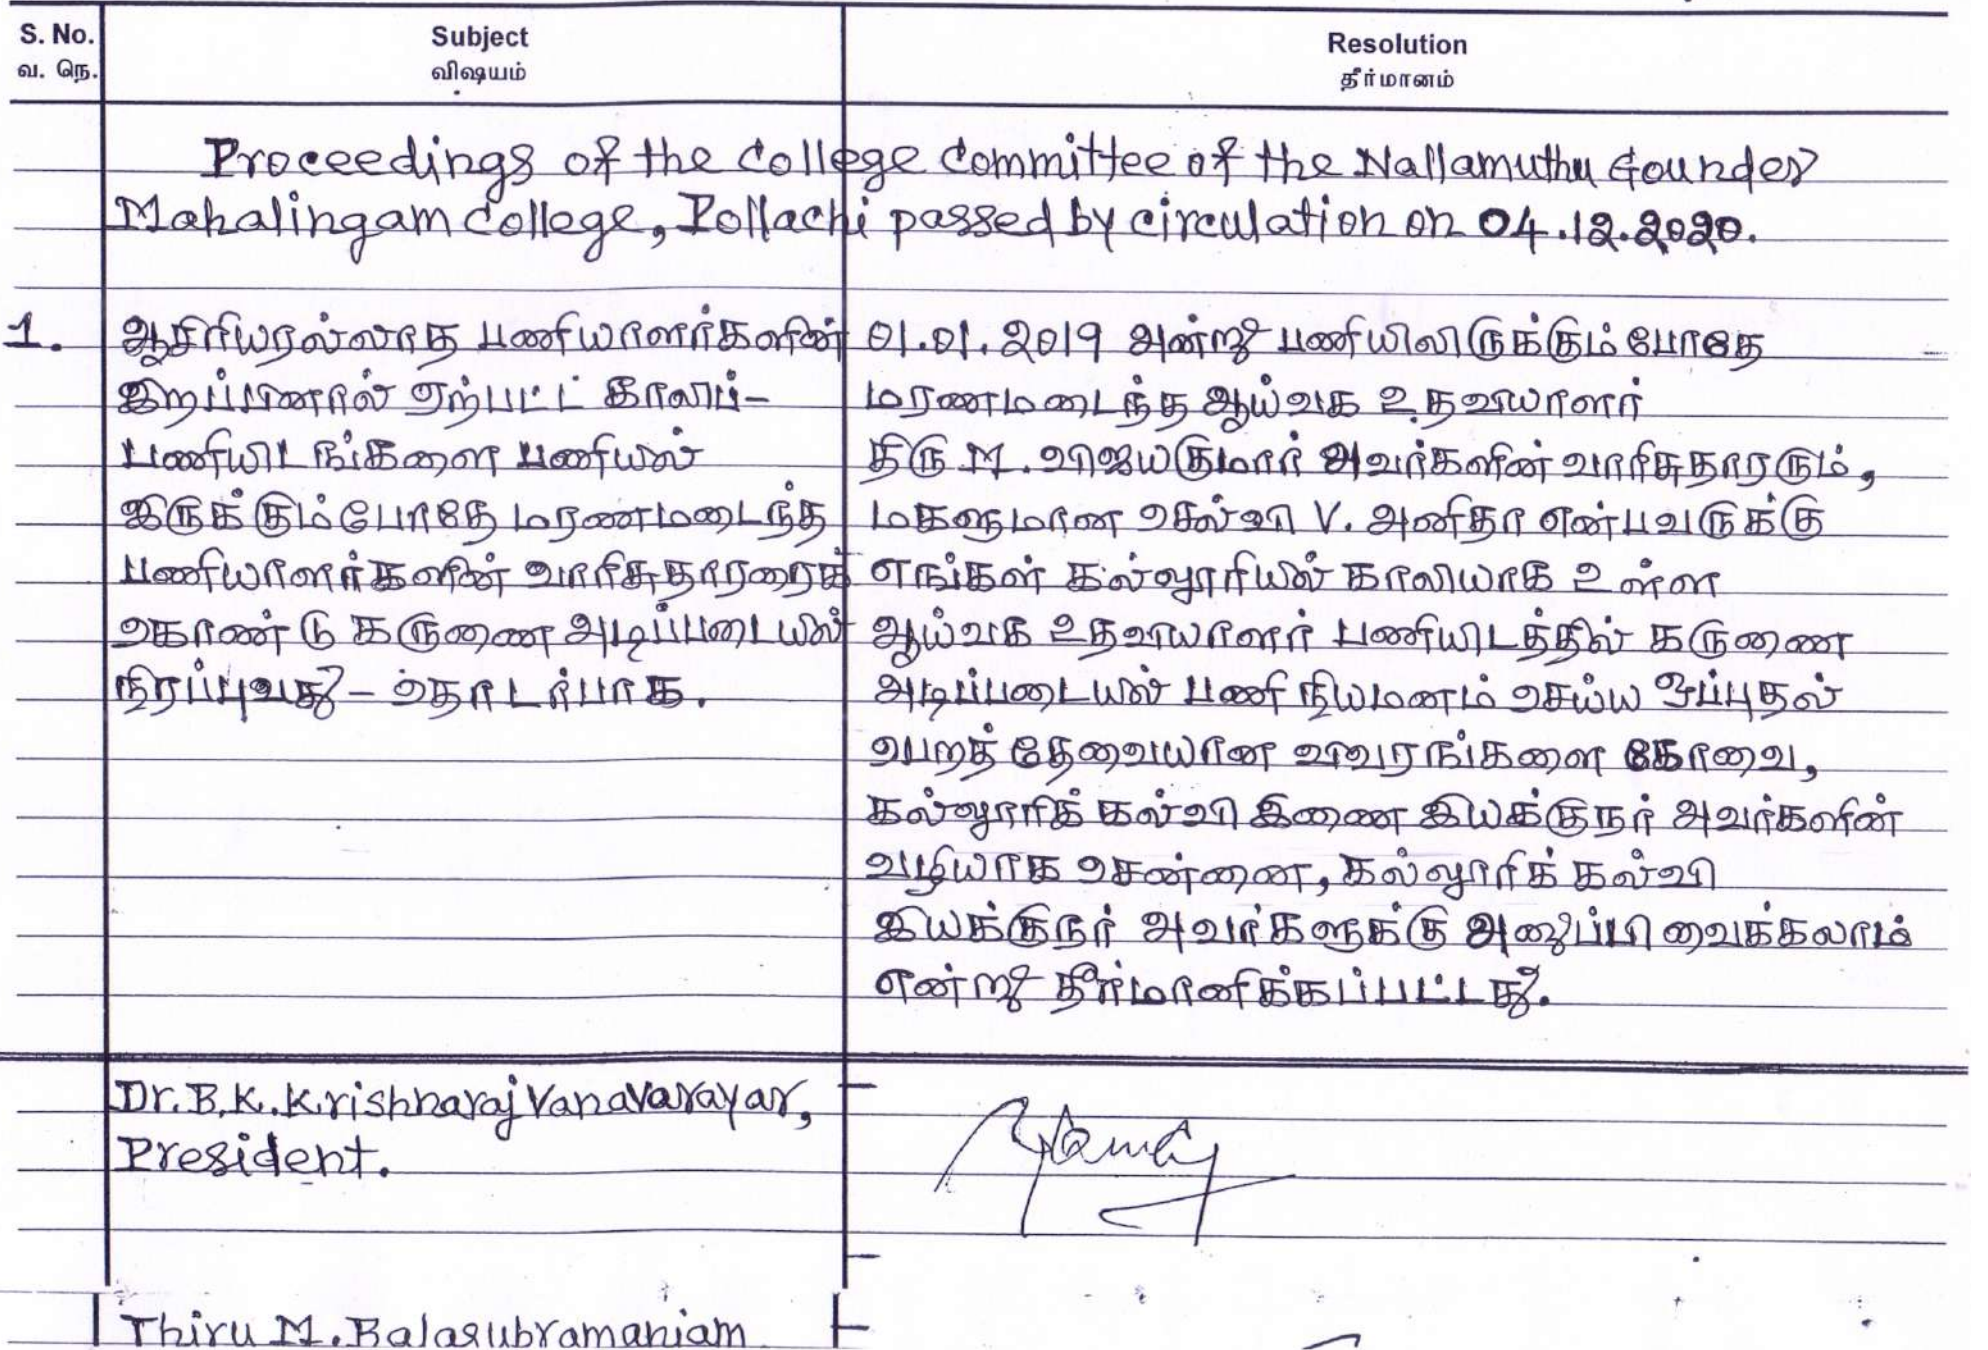 S. No.
வ. நெ.
Subject
விஷயம்
Resolution
தீர்மானம்
Proceedings of the College Committee of the Nallamuthu Gounder
Mahalingam College, Pollachi passed by circulation on 04.12.2020.
1.
ஆசிரியரல்லாத பணியாளர்களின்
இறப்பினால் ஏற்பட்ட காலிப்-
பணியிடங்களை பணியில்
இருக்கும்போதே மரணமடைந்த
பணியாளர்களின் வாரிசுதாரரைக்
கொண்டு கருணை அடிப்படையில்
நிரப்புவது - தொடர்பாக.
01.01.2019 அன்று பணியிலிருக்கும் போதே
மரணமடைந்த ஆய்வக உதவியாளர்
திரு M. விஜயகுமார் அவர்களின் வாரிசுதாரரும்,
மகளுமான செல்வி V. அனிதா என்பவருக்கு
எங்கள் கல்லூரியில் காலியாக உள்ள
ஆய்வக உதவியாளர் பணியிடத்தில் கருணை
அடிப்படையில் பணி நியமனம் செய்ய ஒப்புதல்
பெறத் தேவையான விவரங்களை கோவை,
கல்லூரிக் கல்வி இணை இயக்குநர் அவர்களின்
வழியாக சென்னை, கல்லூரிக் கல்வி
இயக்குநர் அவர்களுக்கு அனுப்பி வைக்கலாம்
என்று தீர்மானிக்கப்பட்டது.
Dr. B.K. Krishnaraj Vanavarayar,
President.
Thiru M. Balasubramaniam